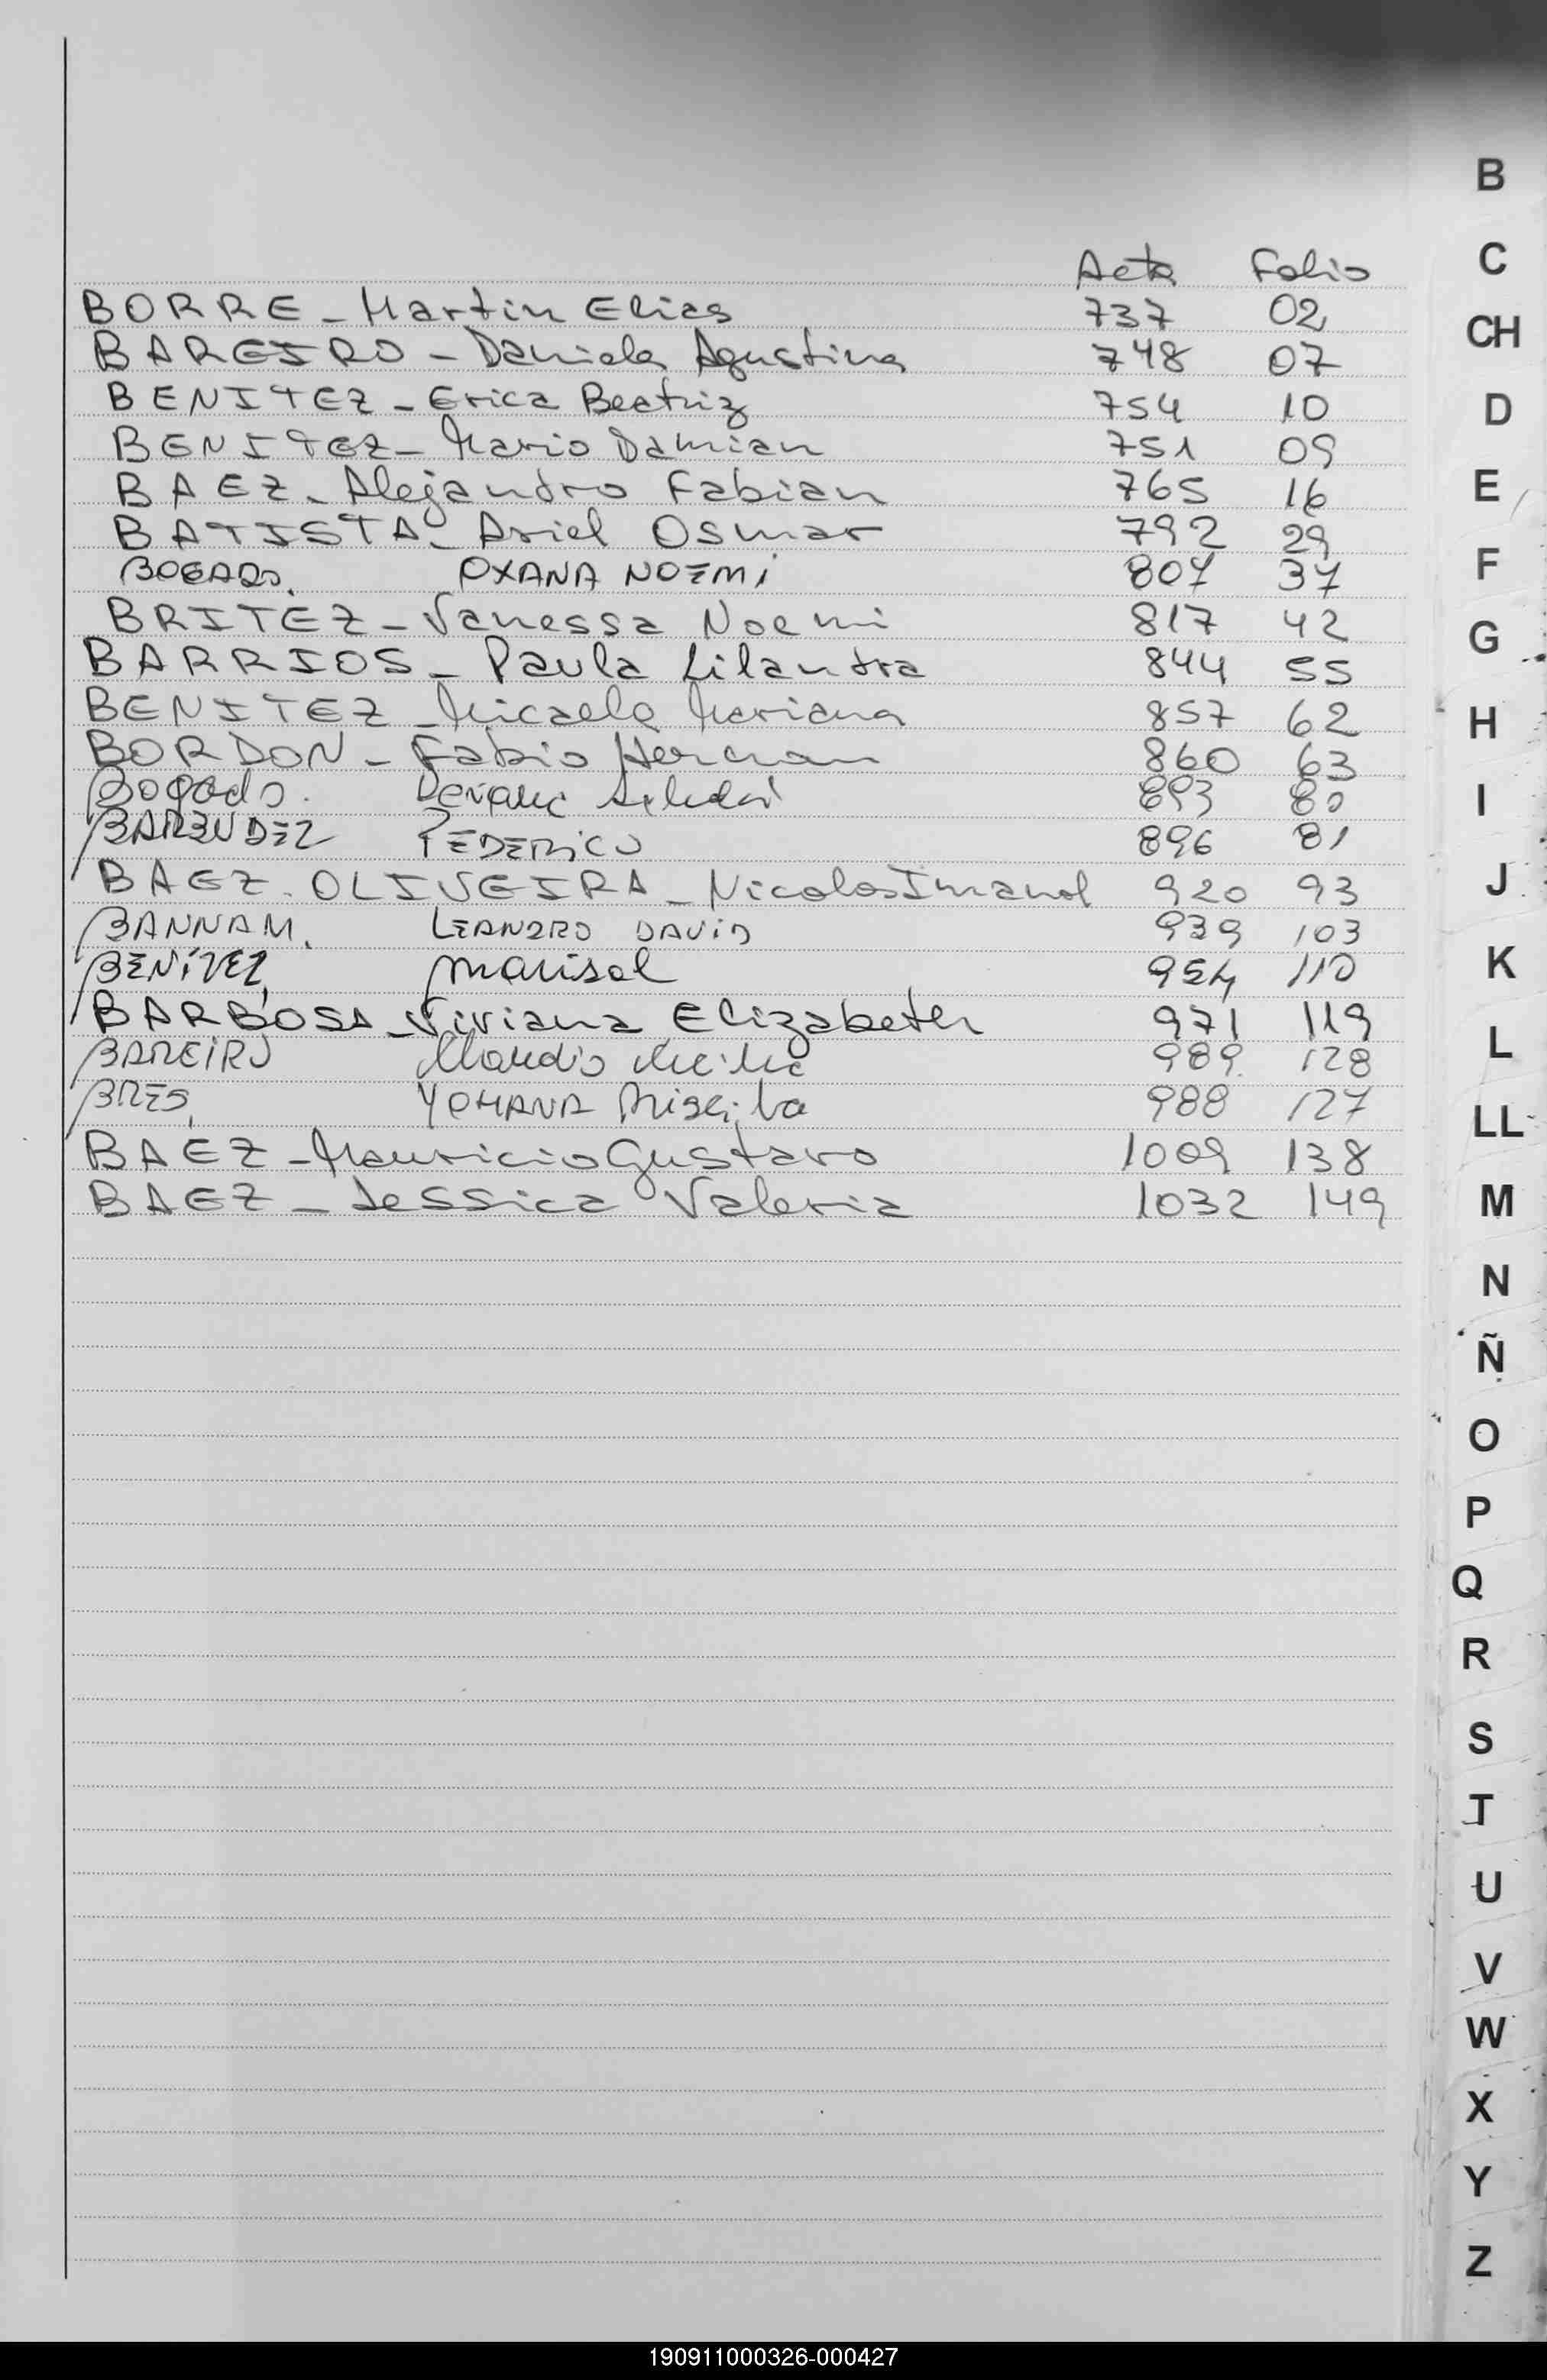 Acta Folio
BORRE - Martin Elias 737 02
BAREIRO - Daniela Agustina 748 07
BENITEZ - Erica Beatriz 754 10
BENITEZ - Mario Damian 751 09
BAEZ - Alejandro Fabian 765 16
BATISTA - Ariel Osmar 792 29
BOGADO. OXANA NOEMI 807 37
BRITEZ - Vanessa Noemi 817 42
BARRIOS - Paula Lilandra 844 55
BENITEZ - Micaela Mariana 857 62
BORDON - Fabio Hernan 860 63
Bogado. 893 80
FEDERICO 896 81
BAEZ. OLIVEIRA - Nicolas Imanol 920 93
BANNAM. LEANDRO DAVID 939 103
BENÍTEZ, Marisol 954 110
BARBOSA - Viviana Elizabeth 971 119
BAREIRO 989 128
YOHANA 988 127
BAEZ - Mauricio Gustavo 1009 138
BAEZ - Jessica Valeria 1032 149
B
C
CH
D
E
F
G
H
I
J
K
L
LL
M
N
Ñ
O
P
Q
R
S
T
U
V
W
X
Y
Z
190911000326-000427